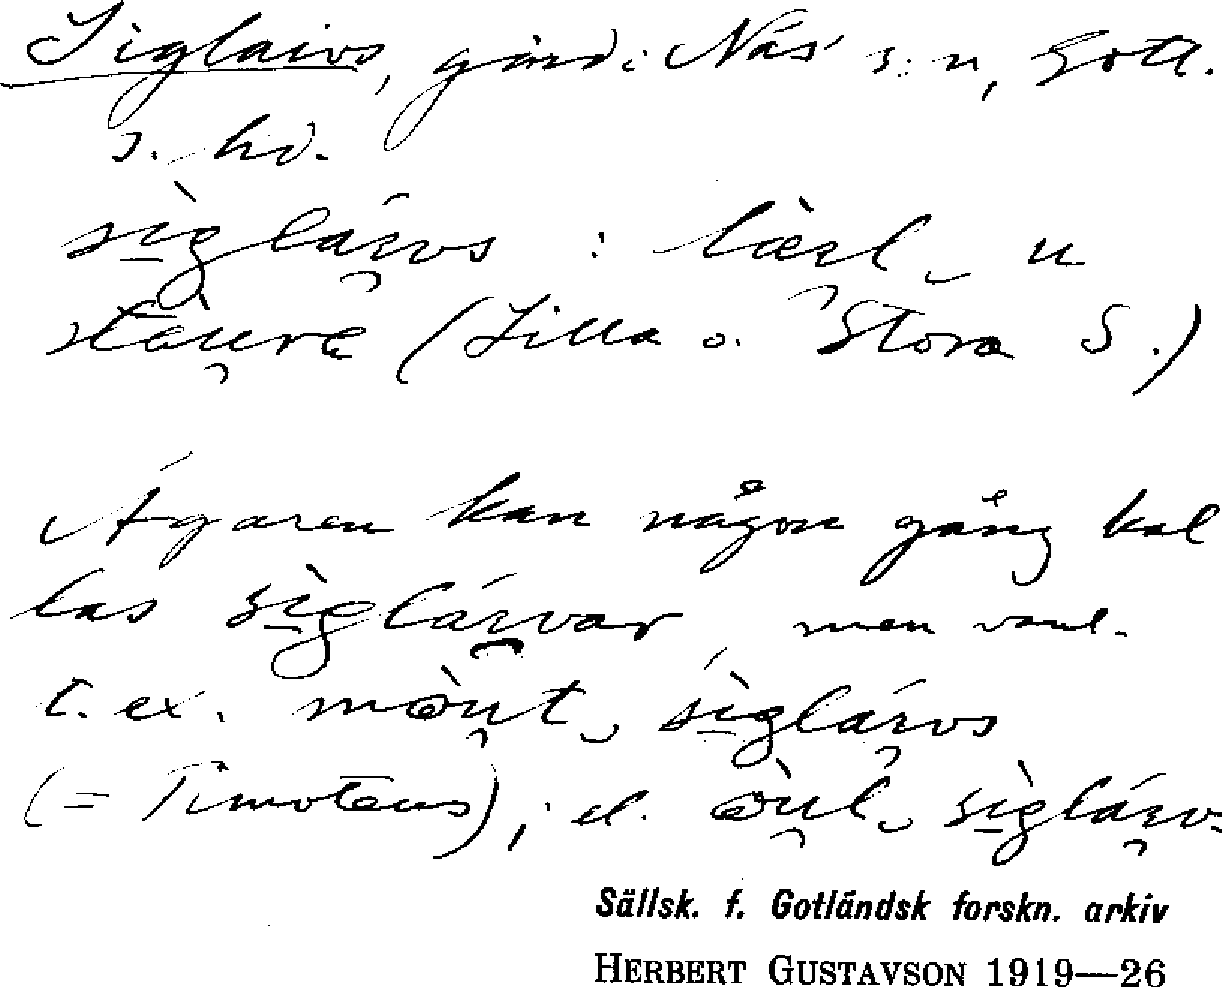 Siglaivs, gård i Näs s:n, Gotl.
s. hd.
sìgláivs : lìtl u
stàurę (Lilla o. Stora S.)
Ägaren kan någon gång kal
las sìgláivar, men vanl.
t. ex. mòut sìgláivs
(= Timoteus), el. òul sìgláivs
Sällsk. f. Gotländsk forskn. arkiv
HERBERT GUSTAVSON 1919—26